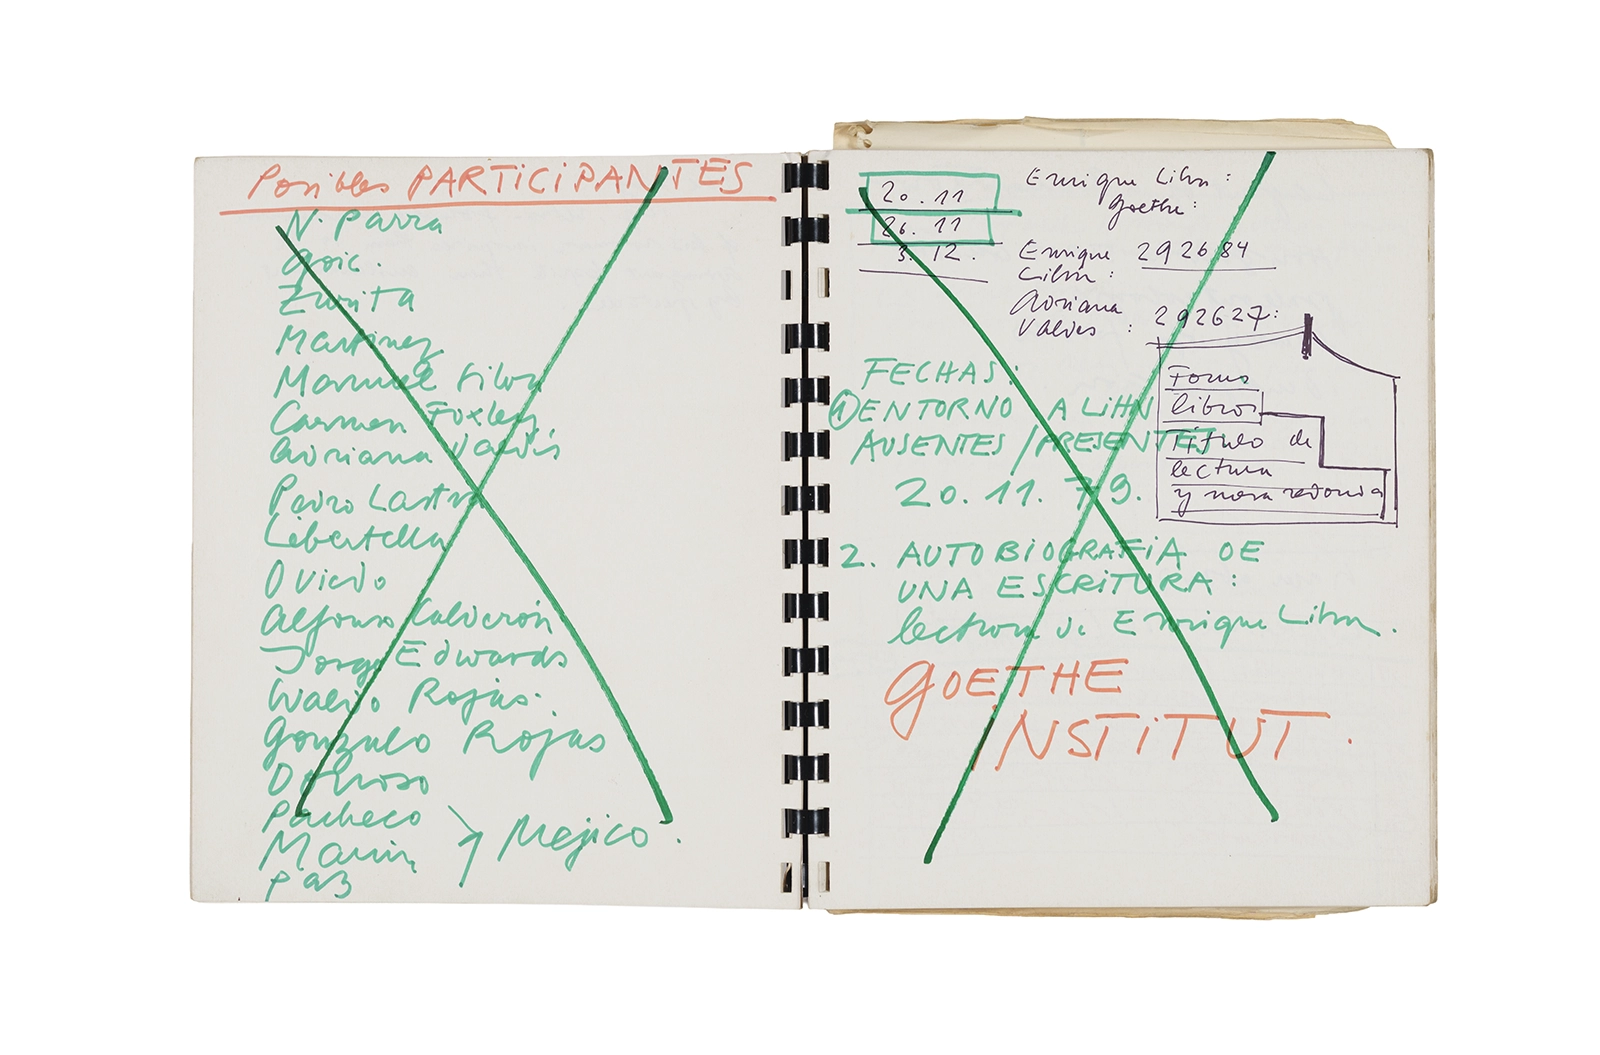 Posibles PARTICIPANTES
N. Parra
Goic.
Zurita
Martinez
Manuel Silva
Carmen Foxley
Adriana Valdés
Pedro Lastra
Libertella
Oviedo
Alfonso Calderón
Jorge Edwards
Waldo Rojas.
Gonzalo Rojas
Donoso
Pacheco
Marin
Paz
Mejico.
20.11
26.11
3.12.
Enrique Lihn:
Goethe:
Enrique 292684
Lihn:
Adriana
Valdes : 292627:
FECHAS:
① ENTORNO A LIHN
AUSENTES / PRESENTES
20.11.79.
2. AUTOBIOGRAFIA DE
UNA ESCRITURA:
lectura de Enrique Lihn.
GOETHE
INSTITUT.
libros
Titulo de
lectura
y mesa redonda